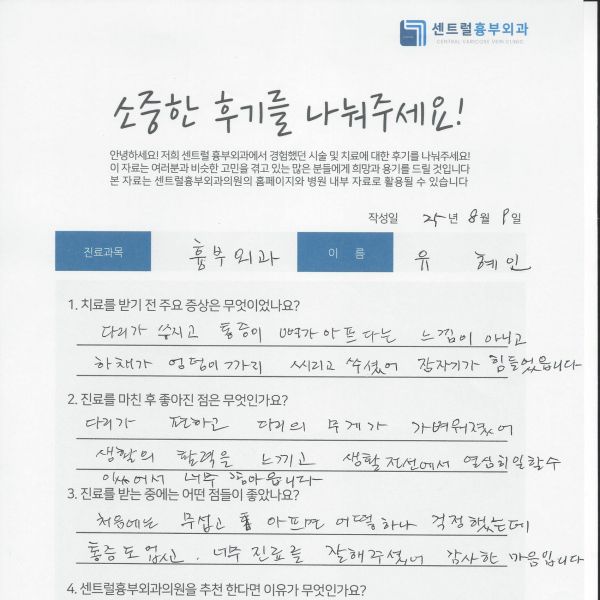 센트럴흉부외과
CENTRAL VARICOSE VEIN CLINIC
소중한 후기를 나눠주세요!
안녕하세요! 저희 센트럴 흉부외과에서 경험했던 시술 및 치료에 대한 후기를 나눠주세요!
이 자료는 여러분과 비슷한 고민을 겪고 있는 많은 분들에게 희망과 용기를 드릴 것입니다
본 자료는 센트럴흉부외과의원의 홈페이지와 병원 내부 자료로 활용될 수 있습니다
작성일 25년 8월 9일
진료과목 흉부외과 이 름 유 혜인
1. 치료를 받기 전 주요 증상은 무엇이었나요?
다리가 쑤시고 통증이 뼈가 아프다는 느낌이 아니고
하체가 엉덩이까지 시리고 쑤셨어 잠자기가 힘들었읍니다
2. 진료를 마친 후 좋아진 점은 무엇인가요?
다리가 편하고 다리의 무게가 가벼워졌어
생활의 활력을 느끼고 생활전선에서 열심히일할수
있써어서 너무 좋아읍니다
3. 진료를 받는 중에는 어떤 점들이 좋았나요?
처음에는 무섭고 아프면 어떻하나 걱정했는데
통증도 업섰고. 너무 진료를 잘해주셨너 감사한 마음입니다
4. 센트럴흉부외과의원을 추천 한다면 이유가 무엇인가요?